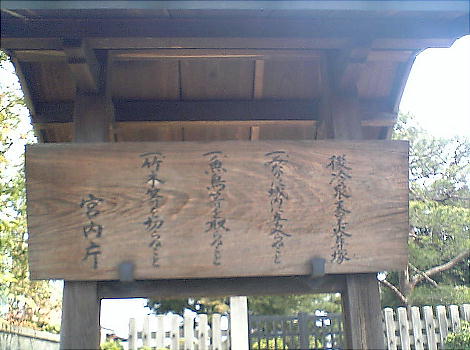 後冷泉天皇火葬塚
一みだりに域内に立入らぬこと
一魚鳥等を取らぬこと
一竹木等を切らぬこと
宮内庁